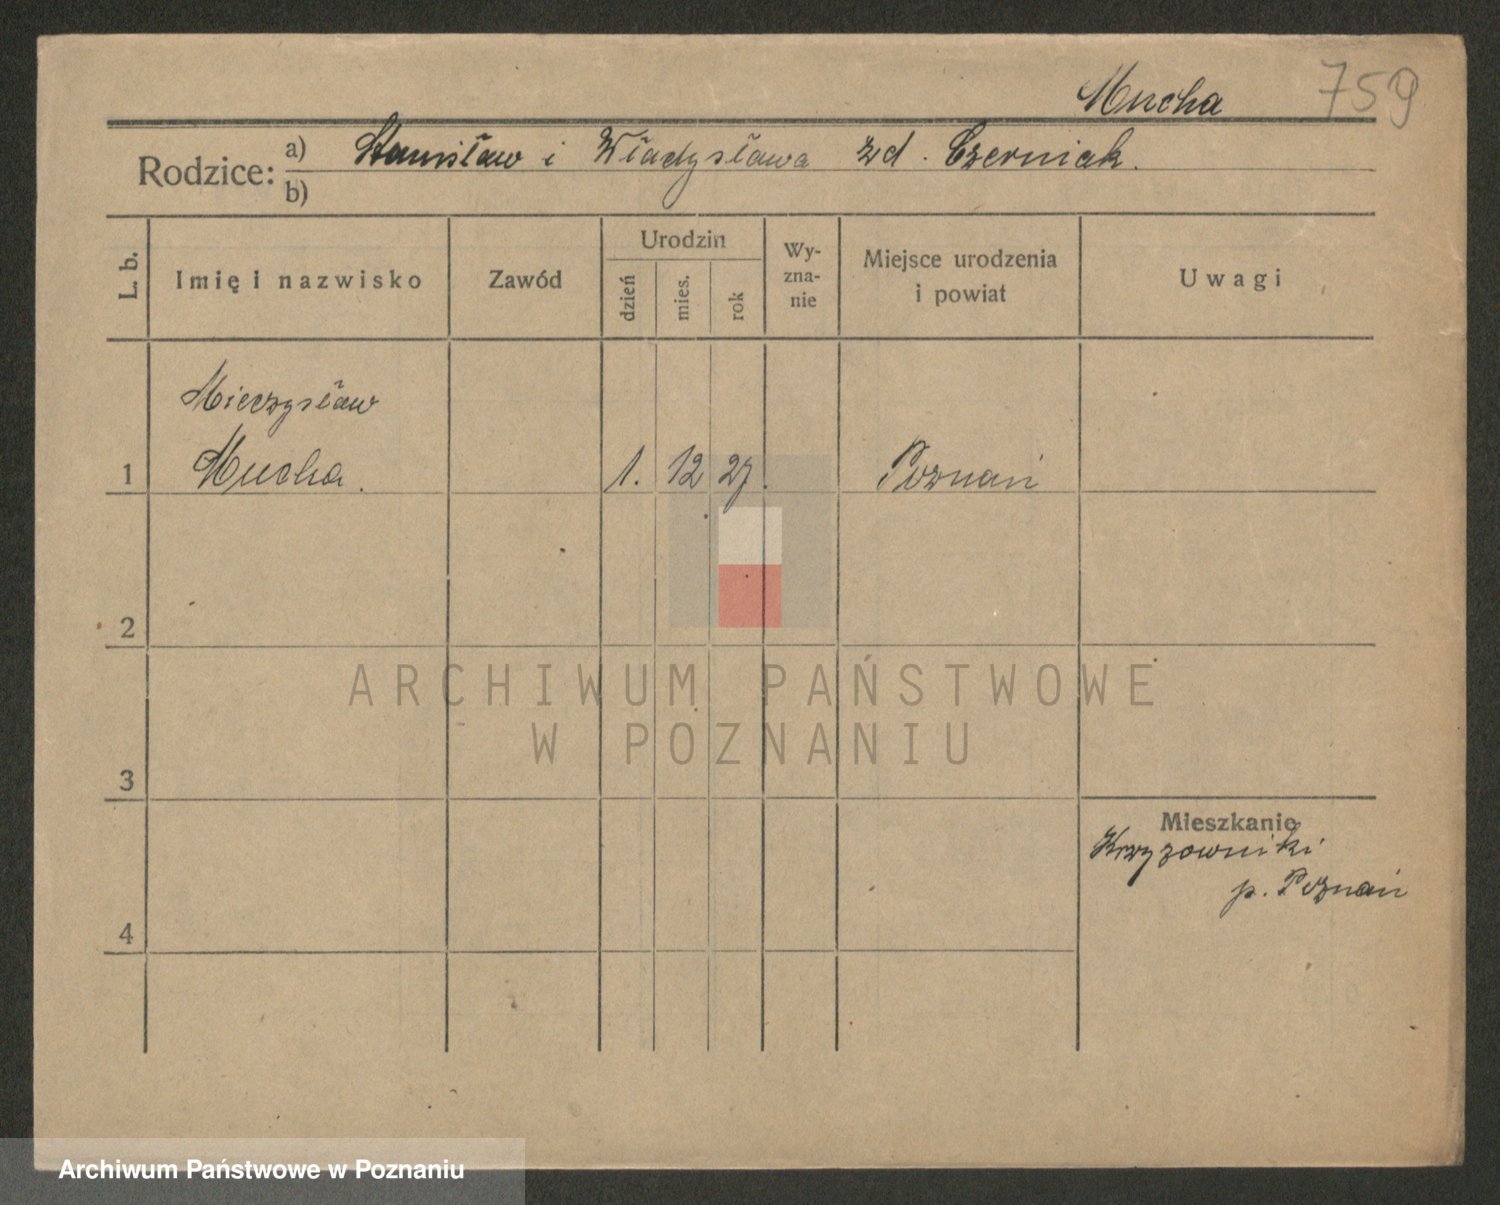 Mucha 759
Rodzice: a) Stanisław i Władysława zd. Czerniak.
b)
L. b. Imię i nazwisko Zawód Urodzin dzień mies. rok Wyzna-nie Miejsce urodzenia i powiat Uwagi
Mieczysław
1 Mucha. 1. 12 27. Poznań
2
ARCHIWUM PAŃSTWOWE
W POZNANIU
3
Mieszkanie
Krzyżowniki
p. Poznań
4
Archiwum Państwowe w Poznaniu